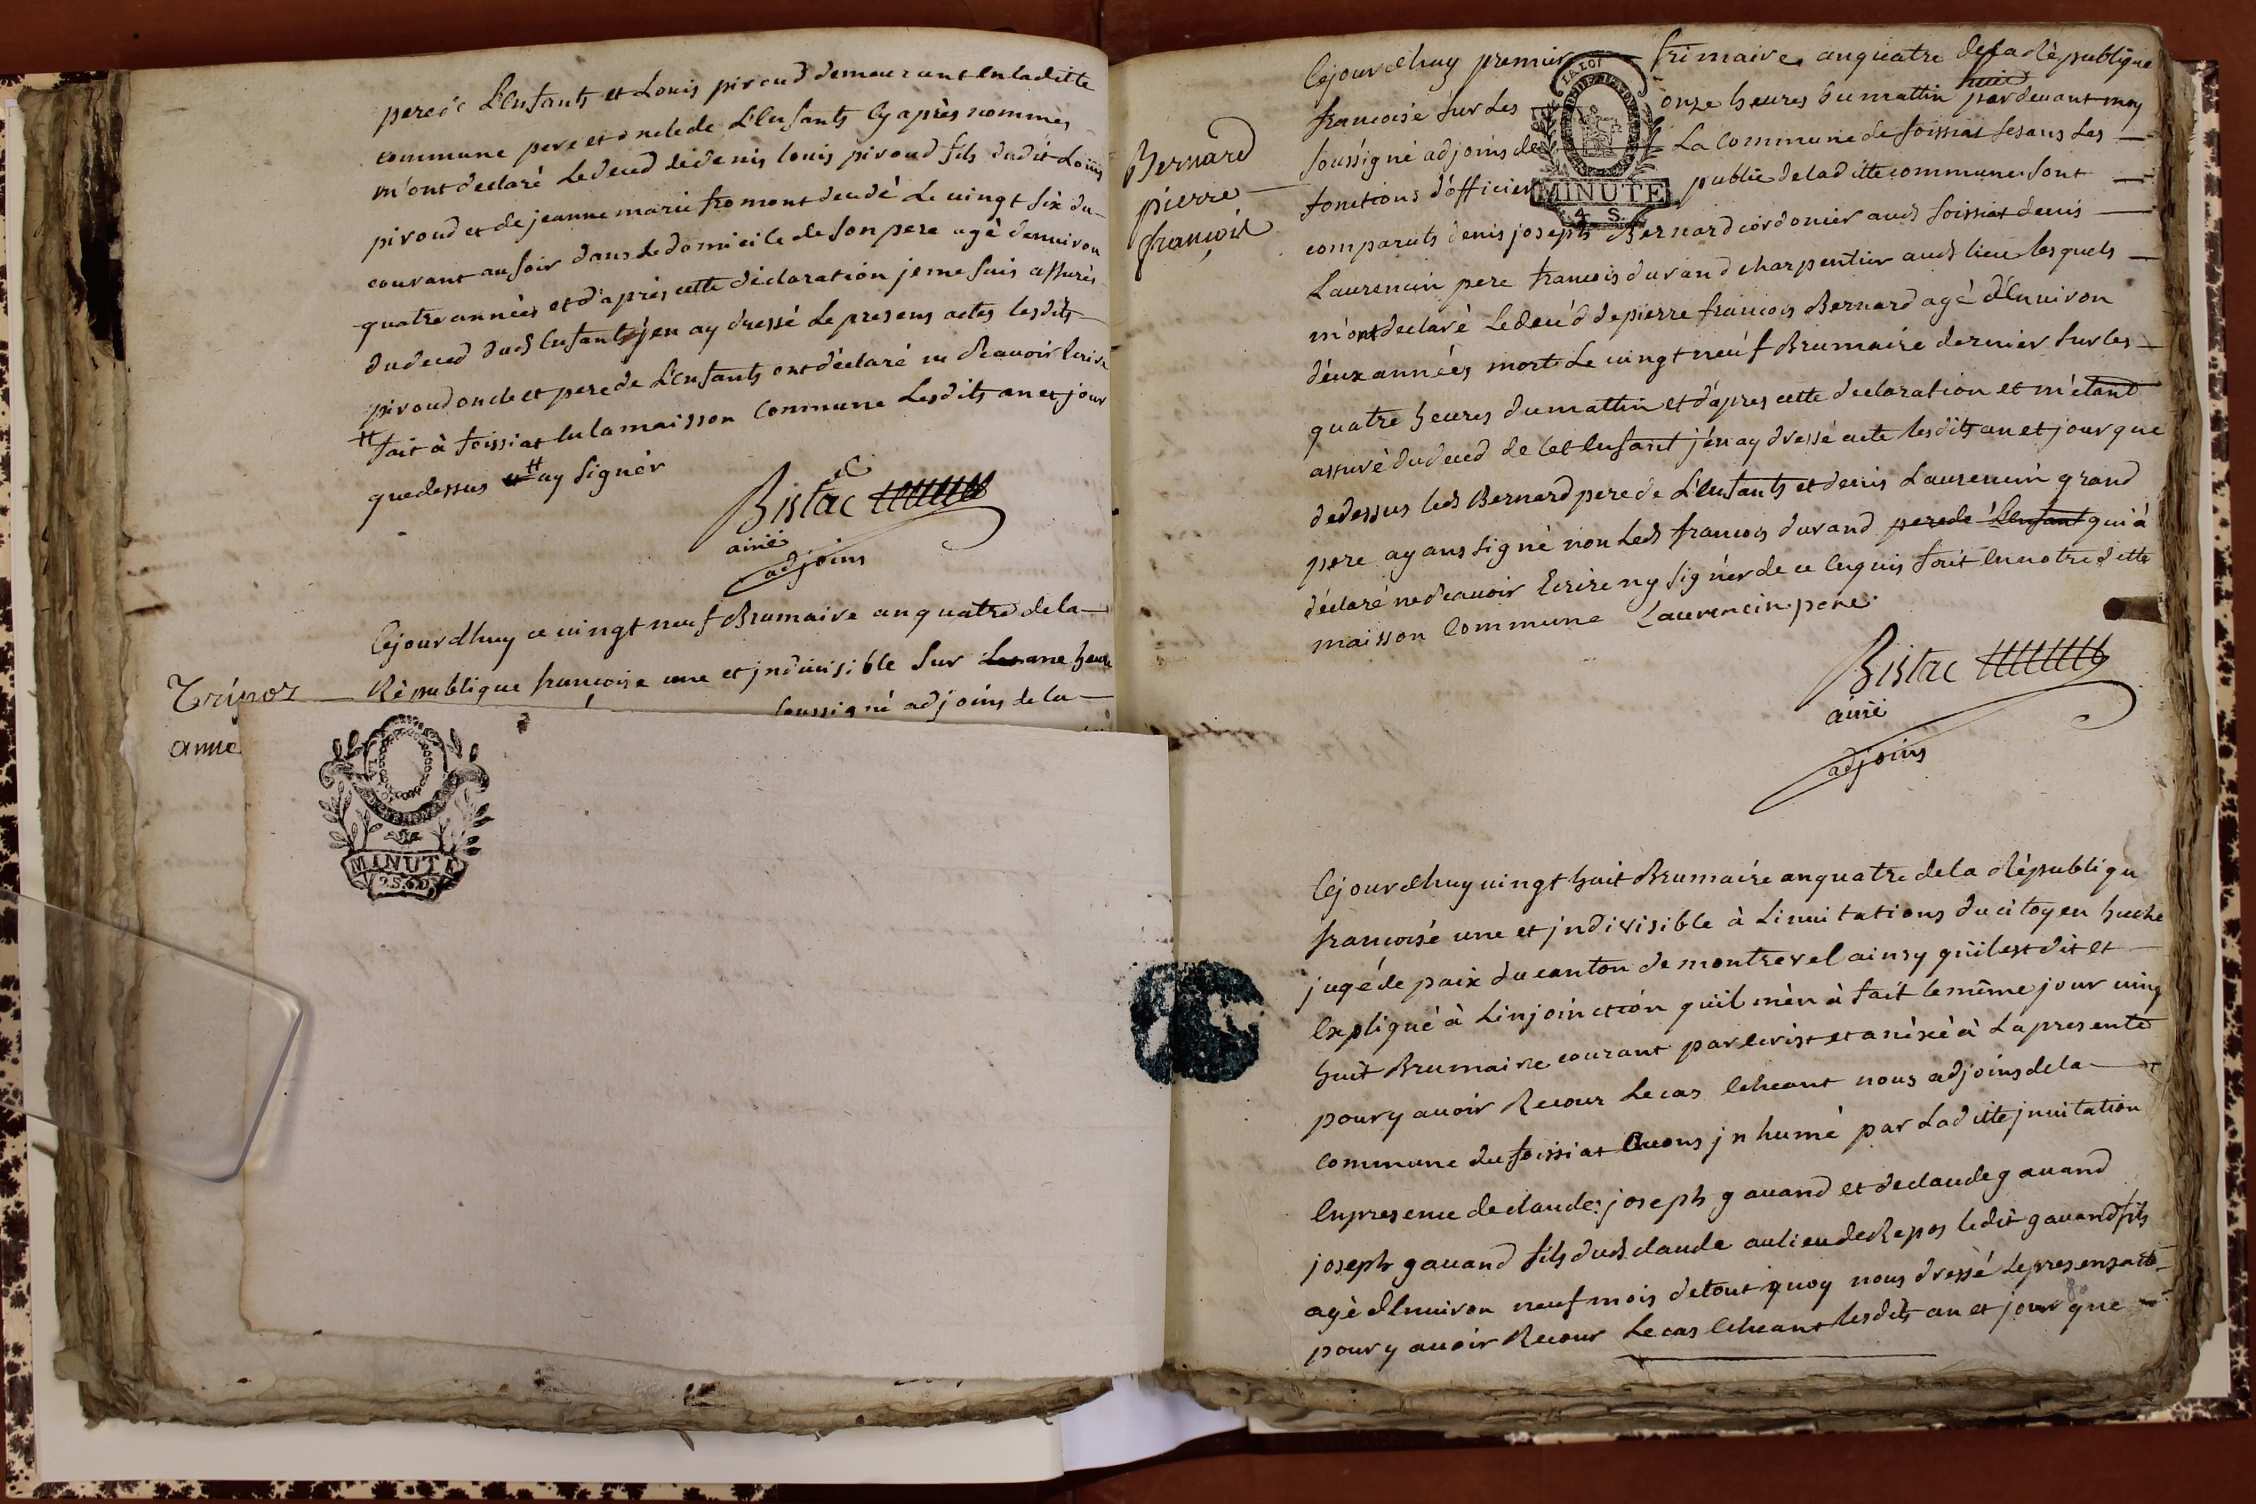 pere de L'Enfants et Louis piroud demeurant en laditte
commune pere et oncle de L'Enfants cy après nommés
m'ont declaré Le deced de denis louis piroud fils dudit Louis
piroud et de jeanne marie fromont decedé Le vingt six du
courant au soir dans le domicile de son pere agé denviron
quatre années et d'après cette déclaration je me suis assuré
du deced dud Enfants j'en ay dressé Le presens actes lesdits
piroud oncle et pere de L'enfants ont déclaré ne scavoir Ecrire
fait à foissiat en la maisson Commune Lesdits an et jour
que dessus et ay signér
Bistac
ainé
adjoins
Cejourdhuy ce vingt neuf Brumaire an quatre de la
République françoise une et jndivisible sur une heure
soussigné adjoins de la
anne
MINUTE
Bernard
pierre
françois
Cejourdhuy premier frimaire an quatre de la République
francoise sur Les onze heures du mattin pardevant moy
soussigné adjoins de La Commune de foissiat fesans Les
fonctions d'officier public de laditte commune sont
LA LOI
MINUTE
4. S.
comparuts denis joseph Bernard cordonier aud foissiat denis
Laurencin pere francois durand charpentier aud lieu lesquels
m'ont declaré Le décéd de pierre francois Bernard agé d'Environ
deux années mort Le vingt neuf Brumaire dernier sur les
quatre heures du mattin et d'apres cette declaration et m'étant
assuré du deced de cet Enfant j'en ay dressé acte lesdits an et jour que
dedessus led Bernard pere de L'Enfants et denis Laurencin grand
pere ayans signé non Led francois durand pere de L'Enfant qui à
déclaré ne scavoir Ecrire ny signér de ce Enquis fait En notre ditte
maisson Commune Laurencin pere
Bistac
ainé
adjoins
Cejourdhuy vingt huit Brumaire an quatre de la République
francoisé une et jndivisible à Linvitations du citoyen huche
jugé de paix du canton de montrevel ainsy quil est dit et
Expliqué à Linjoinction quil mèn à fait le même jour ving
huit Brumaire courant par ecrist et anéxé à La presente
pour y avoir Recour Le cas Echeant nous adjoins de la
Commune du foissiat Avons jnhumé par Laditte jnvitation
En presence de claude joseph gavand et de claude gavand
joseph gavand fils dud claude au lieu de Repos ledit gavand fils
agé d'Environ neuf mois de tout quoy nous dressé Le presens acte
pour y avoir Recour Le cas Echeant lesdits an et jour que